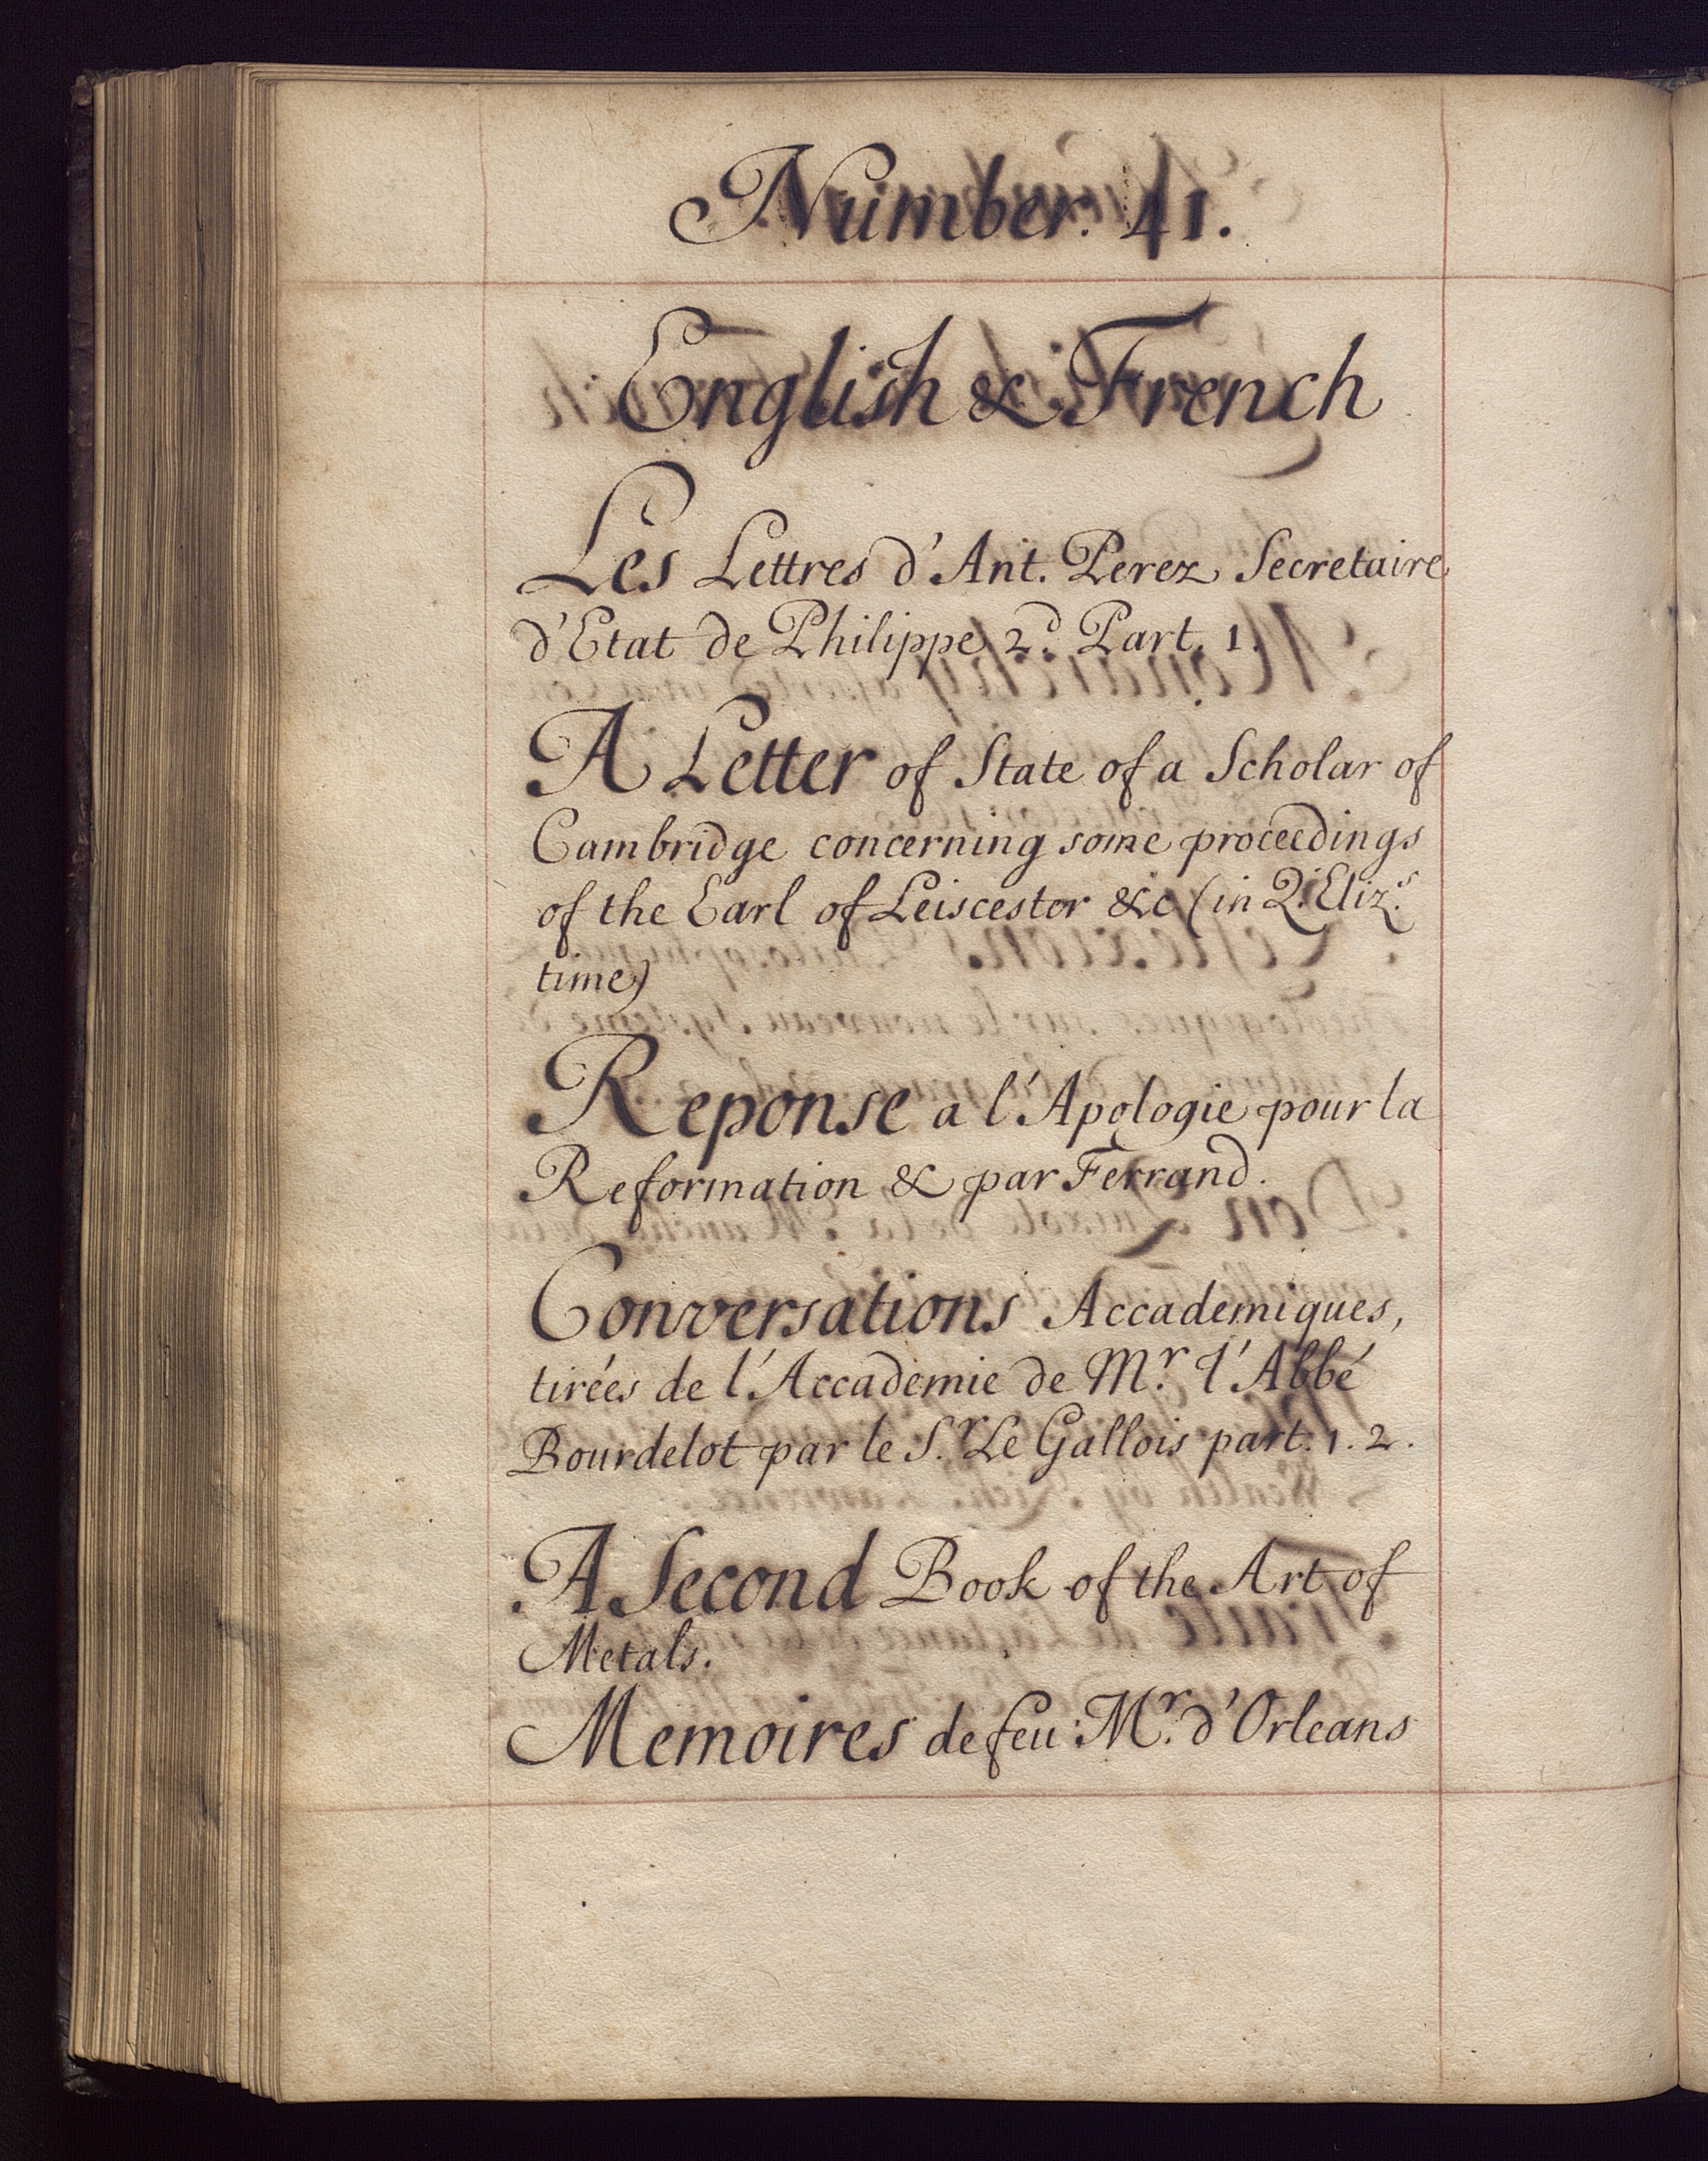 Number. 41.
English & French
Les Lettres d'Ant. Perez Secretaire
d'Etat de Philippe 2d. Part. 1.
A Letter of State of a Scholar of
Cambridge concerning some proceedings
of the Earl of Leiscester &c (in Q. Eliz.s
time)
Reponse a l'Apologie pour la
Reformation & par Ferrand.
Conversations Accademiques,
tirées de l'Accademie de Mr. l'Abbé
Bourdelot par le Sr. Le Gallois part. 1. 2.
A Second Book of the Art of
Metals.
Memoires de feu Mr. d'Orleans